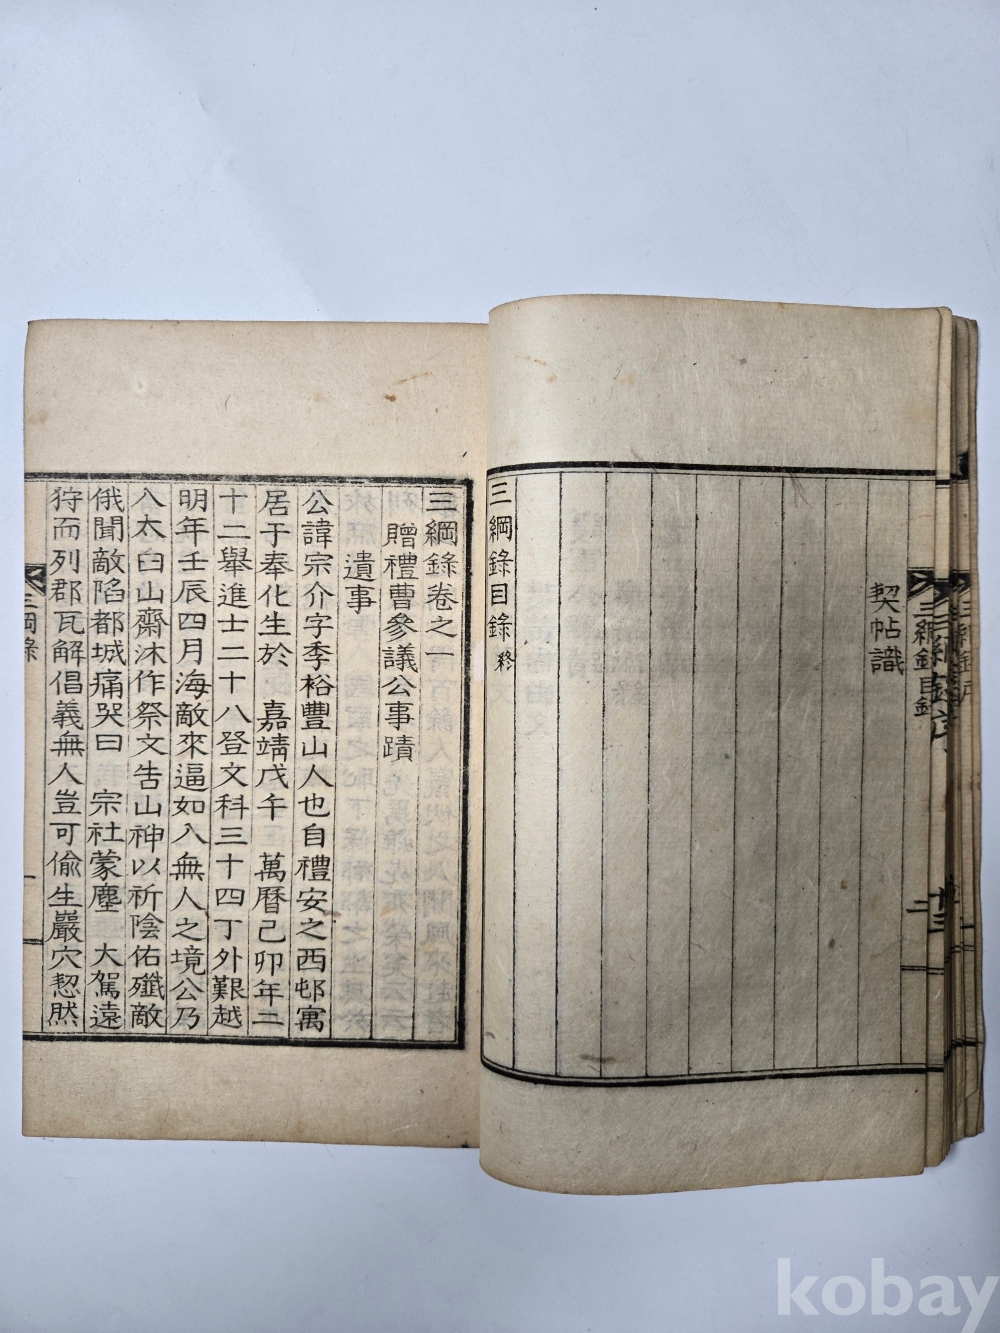 契帖識
三綱錄目錄 終
三綱錄目錄
二
三綱錄卷之一
贈禮曹參議公事蹟
遺事
公諱宗介字季裕豐山人也自禮安之西邨寓
居于奉化生於 嘉靖戊午 萬曆己卯年二
十二舉進士二十八登文科三十四丁外艱越
明年壬辰四月海敵來逼如入無人之境公乃
入太白山齋沐作祭文告山神以祈陰佑殲敵
俄聞敵陷都城痛哭曰 宗社蒙塵 大駕遠
狩而列郡瓦解倡義無人豈可偷生巖穴恝然
三綱錄
一
kobay